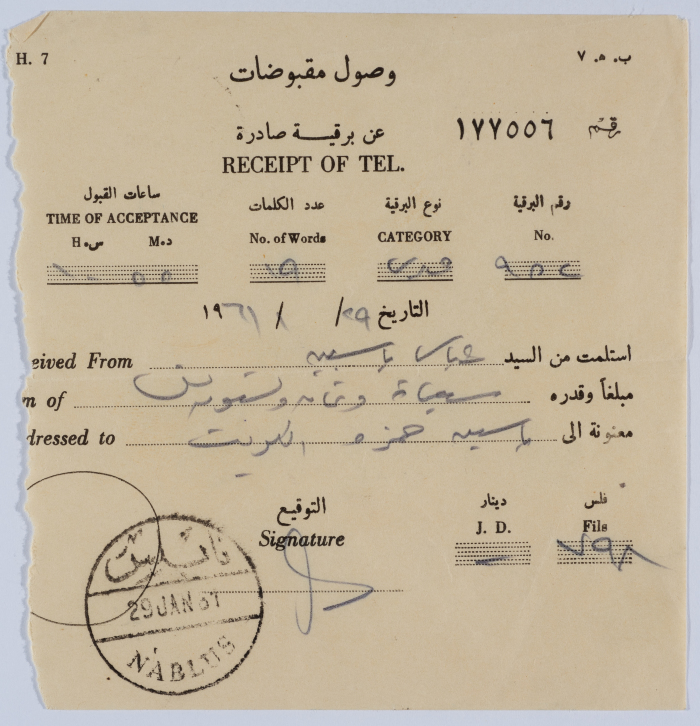 H. 7 ب. ه. ٧
وصول مقبوضات
رقم ١٧٧٥٥٦
عن برقية صادرة
RECEIPT OF TEL.
رقم البرقية نوع البرقية عدد الكلمات ساعات القبول
TIME OF ACCEPTANCE No. of Words CATEGORY No.
H.س د.M
التاريخ ٢٩/ ١/ ١٩٦١
استلمت من السيد ياسين eived From
مبلغاً وقدره m of
معنونة الى ياسين حمزه الكويت dressed to
التوقيع دينار فلس
Signature J. D. Fils
نابلس
29 JAN 61
NABLUS